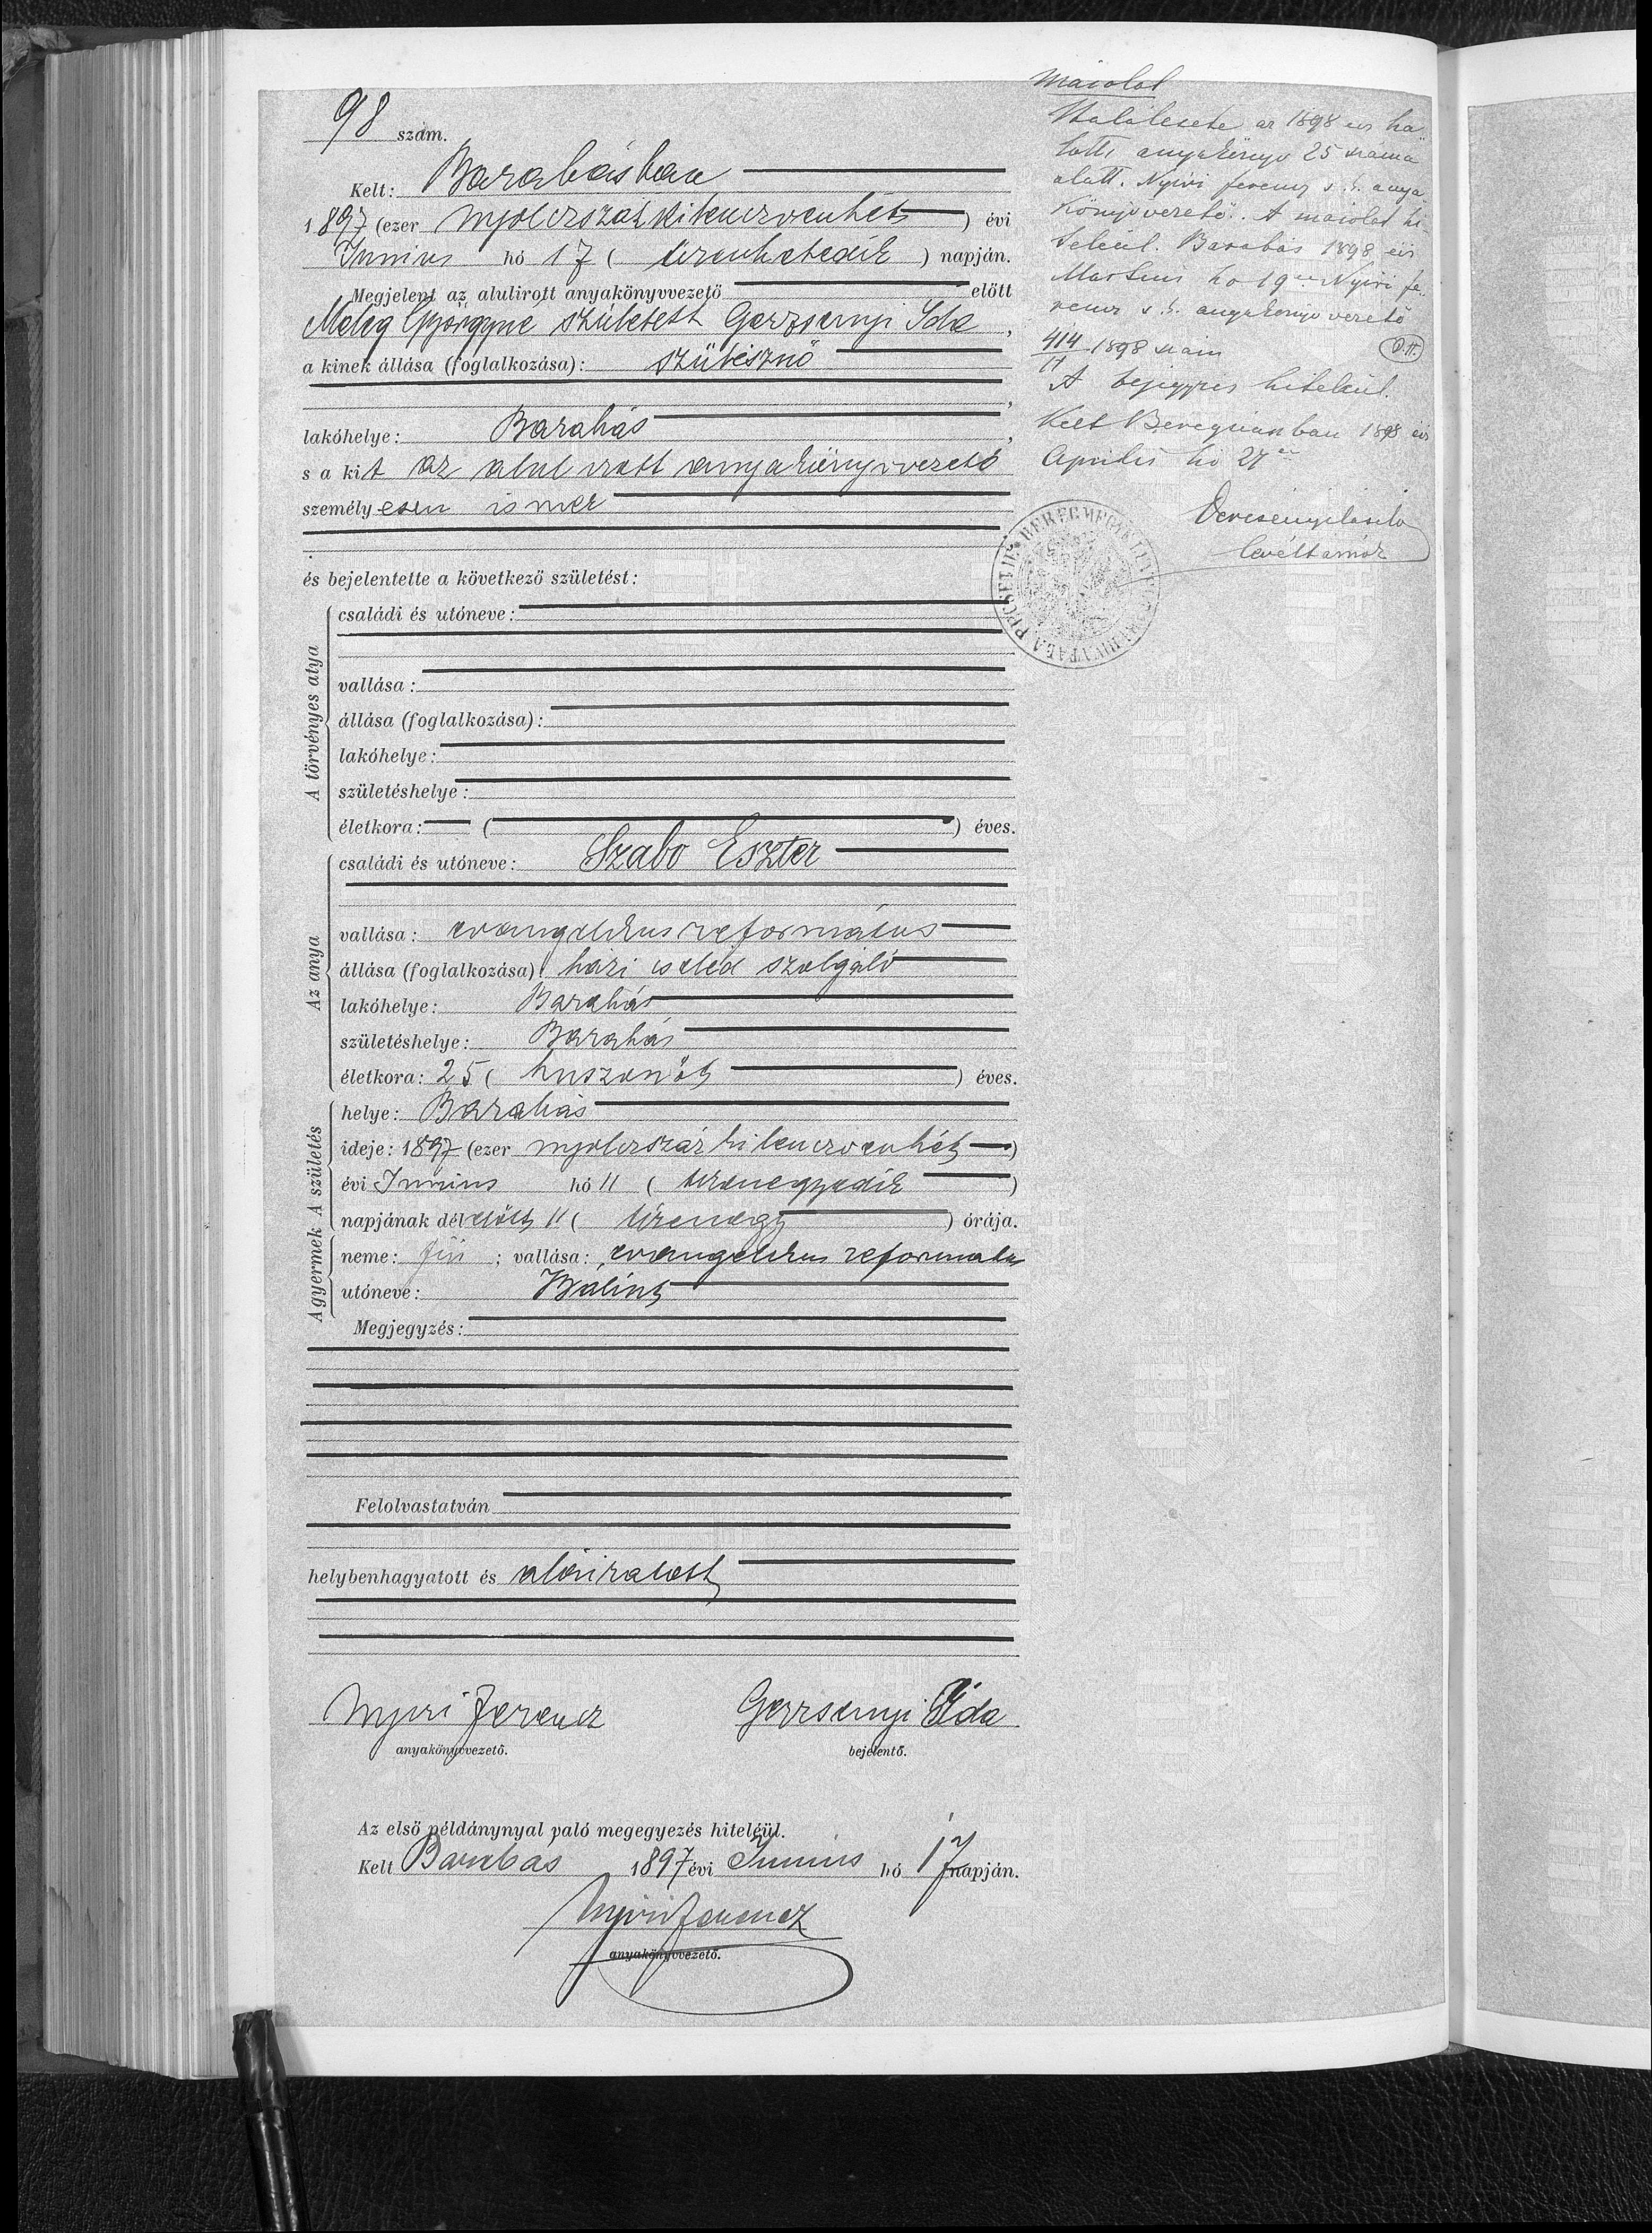 98 szám.
Kelt: Barabásban
1897 (ezer nyolczszáz kilenczvenhét) évi
Junius hó 17 (tizenhetedik) napján.
Megjelent az alulirott anyakönyvvezető előtt
Meleg Györgyné született Gerzsenyi Ida,
a kinek állása (foglalkozása): szülésznő
,
lakóhelye: Barabás,
s a kit az alul irott anyakönyvvezető
személyesen ismer
és bejelentette a következő születést:
A törvényes atya
családi és utóneve:
vallása:
állása (foglalkozása):
lakóhelye:
születéshelye:
életkora: ( ) éves.
Az anya
családi és utóneve: Szabo Eszter
vallása: evangelikus református
állása (foglalkozása): házi cseléd szolgáló
lakóhelye: Barabás
születéshelye: Barabás
életkora: 25 (huszonöt) éves.
A gyermek A születés
helye: Barabás
ideje: 1897 (ezer nyolczszáz kilenczvenhét)
évi Junius hó 11 (tizenegyedik)
napjának délelőtt 11 (tizenegy) órája.
neme: fiú; vallása: evangelikus reformatus
utóneve: Bálint
Megjegyzés:
Felolvastatván
helybenhagyatott és aláiratott
Nyiri Ferencz Gerzsenyi Ida
anyakönyvvezető. bejelentő.
Az első példánynyal való megegyezés hiteléül.
Kelt Barabás 1897 évi Junius hó 17 napján.
Nyiri Ferencz
anyakönyvvezető.
Másolat
Halálesete az 1898 évi ha-
lotti anyakönyv 25 száma
alatt. Nyiri Ferencz s. k. anya-
könyvvezető. A másolat hi-
teléül. Barabás 1898 évi
Martius hó 19én Nyiri Fe-
rencz s. k. anyakönyvvezető
414 1898 szám
A bejegyzés hiteléül.
Kelt Beregszászban 1898 évi
Április hó 27én
levéltárnok